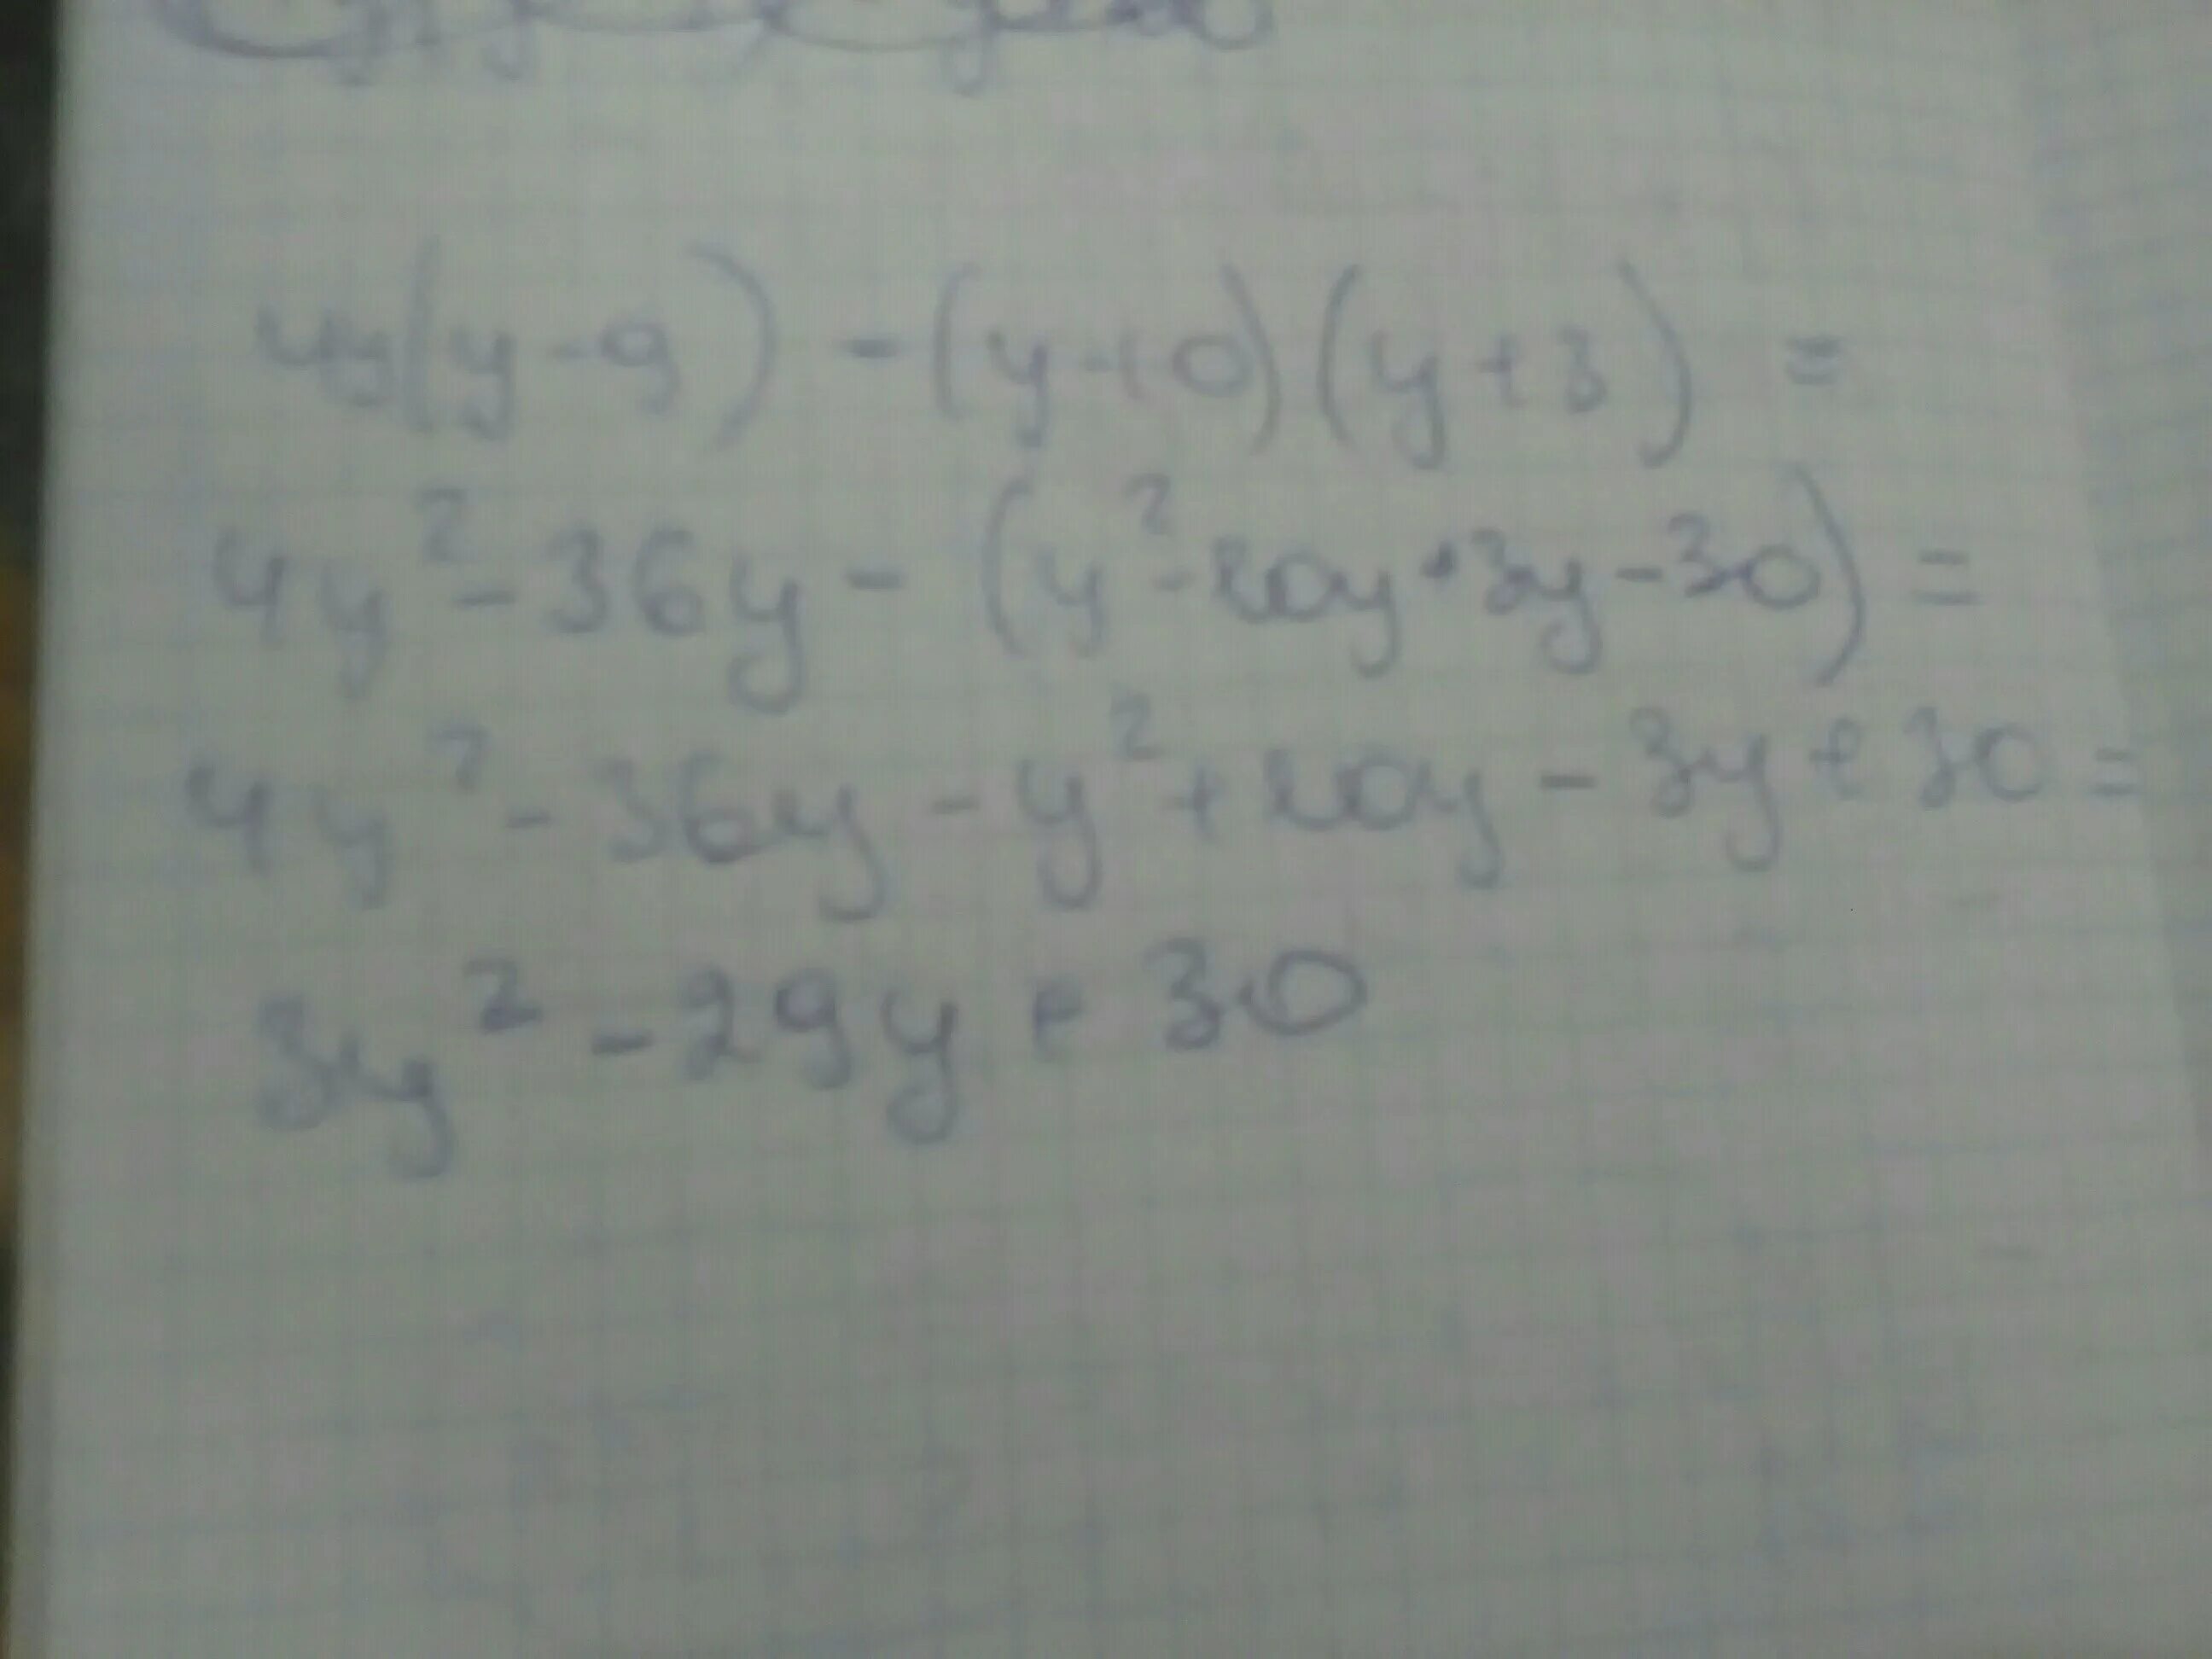 4y(y-9) - (y-10)(y+3) =
4y² - 36y - (y² - 10y + 3y - 30) =
4y² - 36y - y² + 10y - 3y + 30 =
3y² - 29y + 30